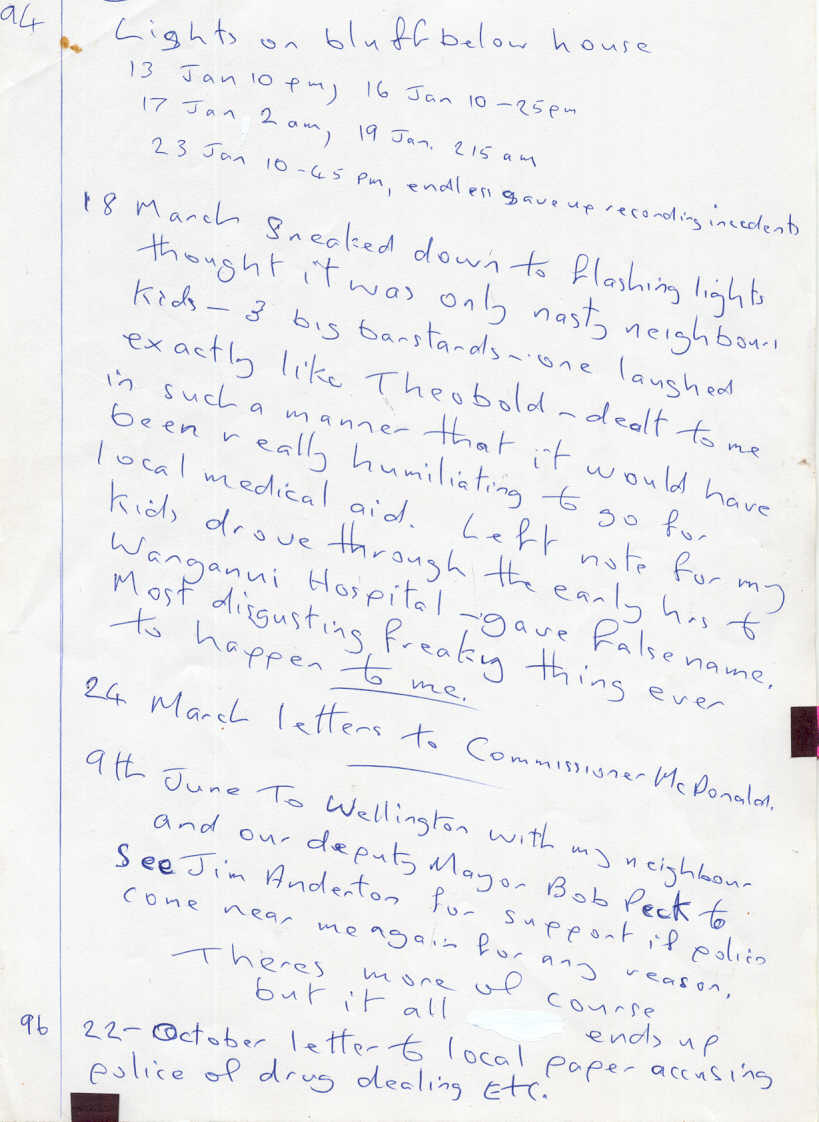 94 Lights on bluff below house
13 Jan 10 pm, 16 Jan 10-25pm
17 Jan 2 am, 19 Jan. 215 am
23 Jan 10-45 pm, endless gave up recording incedents
18 March Sneaked down to flashing lights
thought it was only nasty neighbour
kids - 3 big barstards - one laughed
exactly like Theobold - dealt to me
in such a manner that it would have
been really humiliating to go for
local medical aid. Left note for my
kids drove through the early hrs to
Wanganui Hospital - gave false name.
Most disgusting freaky thing ever
to happen to me.
24 March letters to Commissioner McDonald.
9th June To Wellington with my neighbour
and our deputy Mayor Bob Peck to
See Jim Anderton for support if police
come near me again for any reason.
Theres more of course
but it all ends up
96 22-October letter to local paper accusing
police of drug dealing Etc.